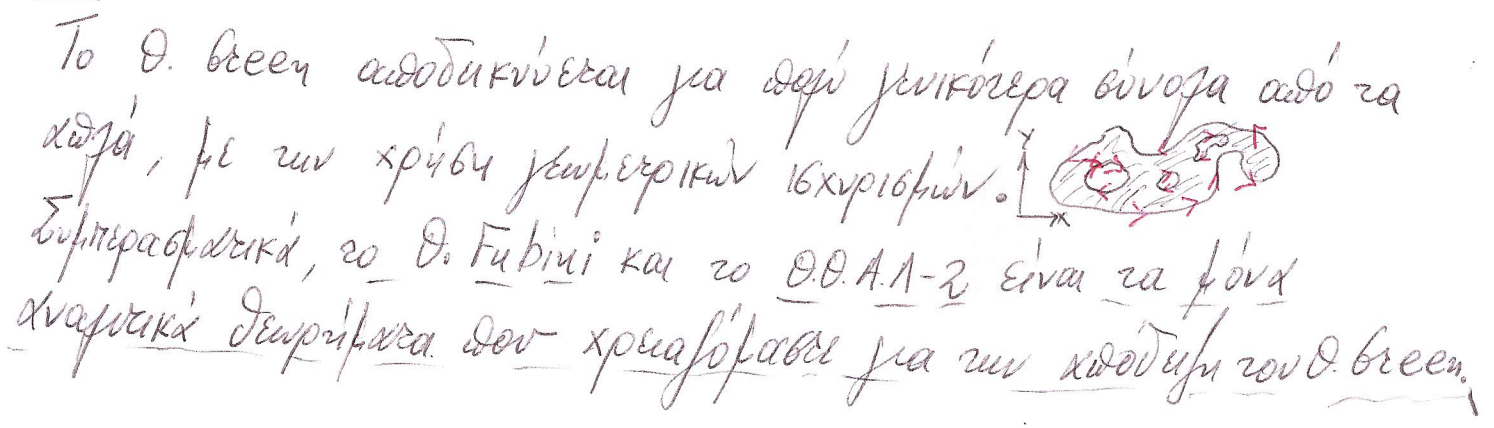 Το Θ. Green αποδεικνύεται για πολύ γενικότερα σύνολα από τα
απλά, με την χρήση γεωμετρικών ισχυρισμών. Y X
Συμπερασματικά, το Θ. Fubini και το Θ.Θ.Α.Λ-2 είναι τα μόνα
αναλυτικά θεωρήματα που χρειαζόμαστε για την απόδειξη του Θ. Green.